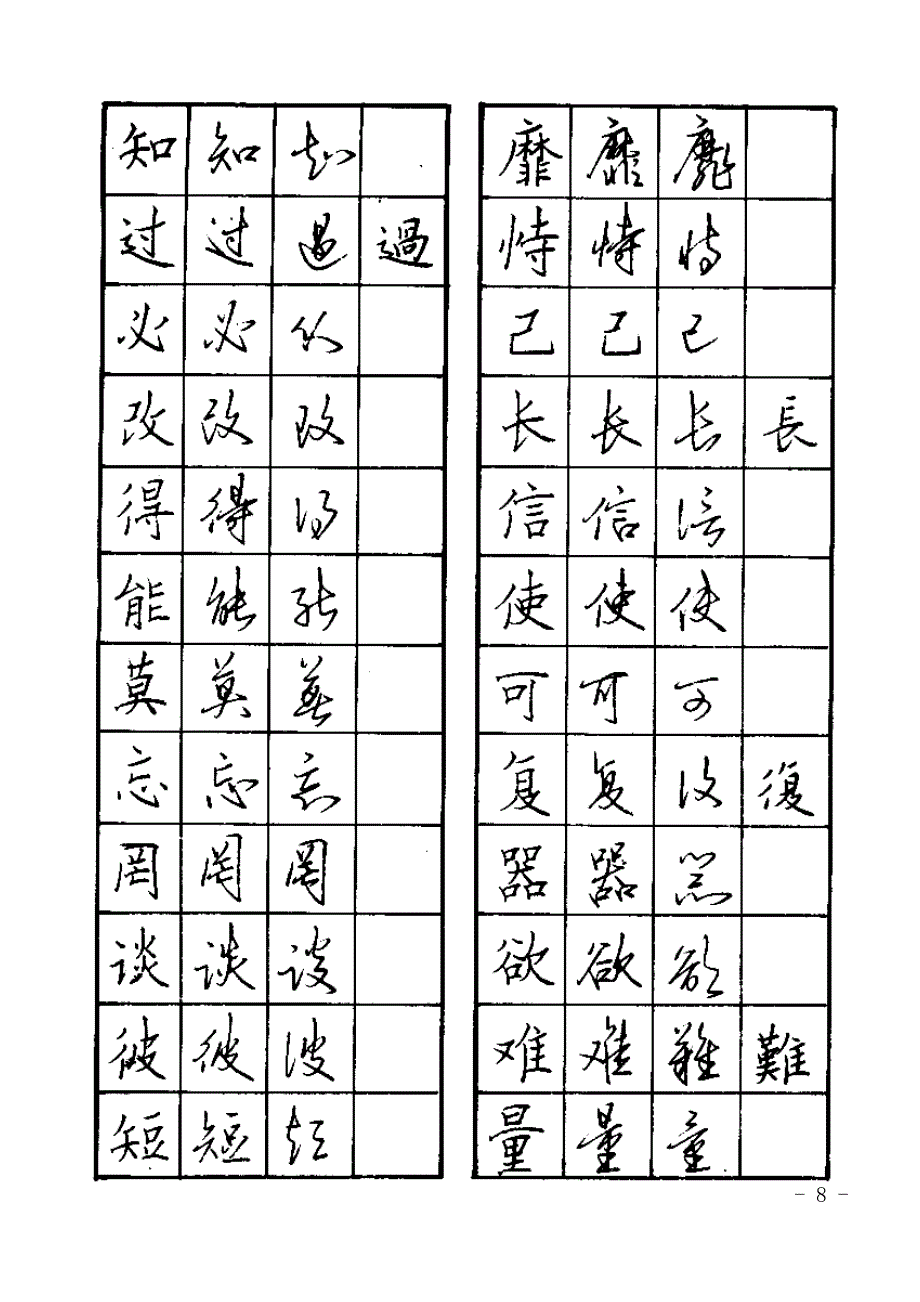 知 知 知
过 过 过 過
必 必 必
改 改 改
得 得 得
能 能 能
莫 莫 莫
忘 忘 忘
罔 罔 罔
谈 谈 谈
彼 彼 彼
短 短 短
靡 靡 靡
恃 恃 恃
己 己 己
长 长 长 長
信 信 信
使 使 使
可 可 可
复 复 复 復
器 器 器
欲 欲 欲
难 难 难 難
量 量 量
- 8 -